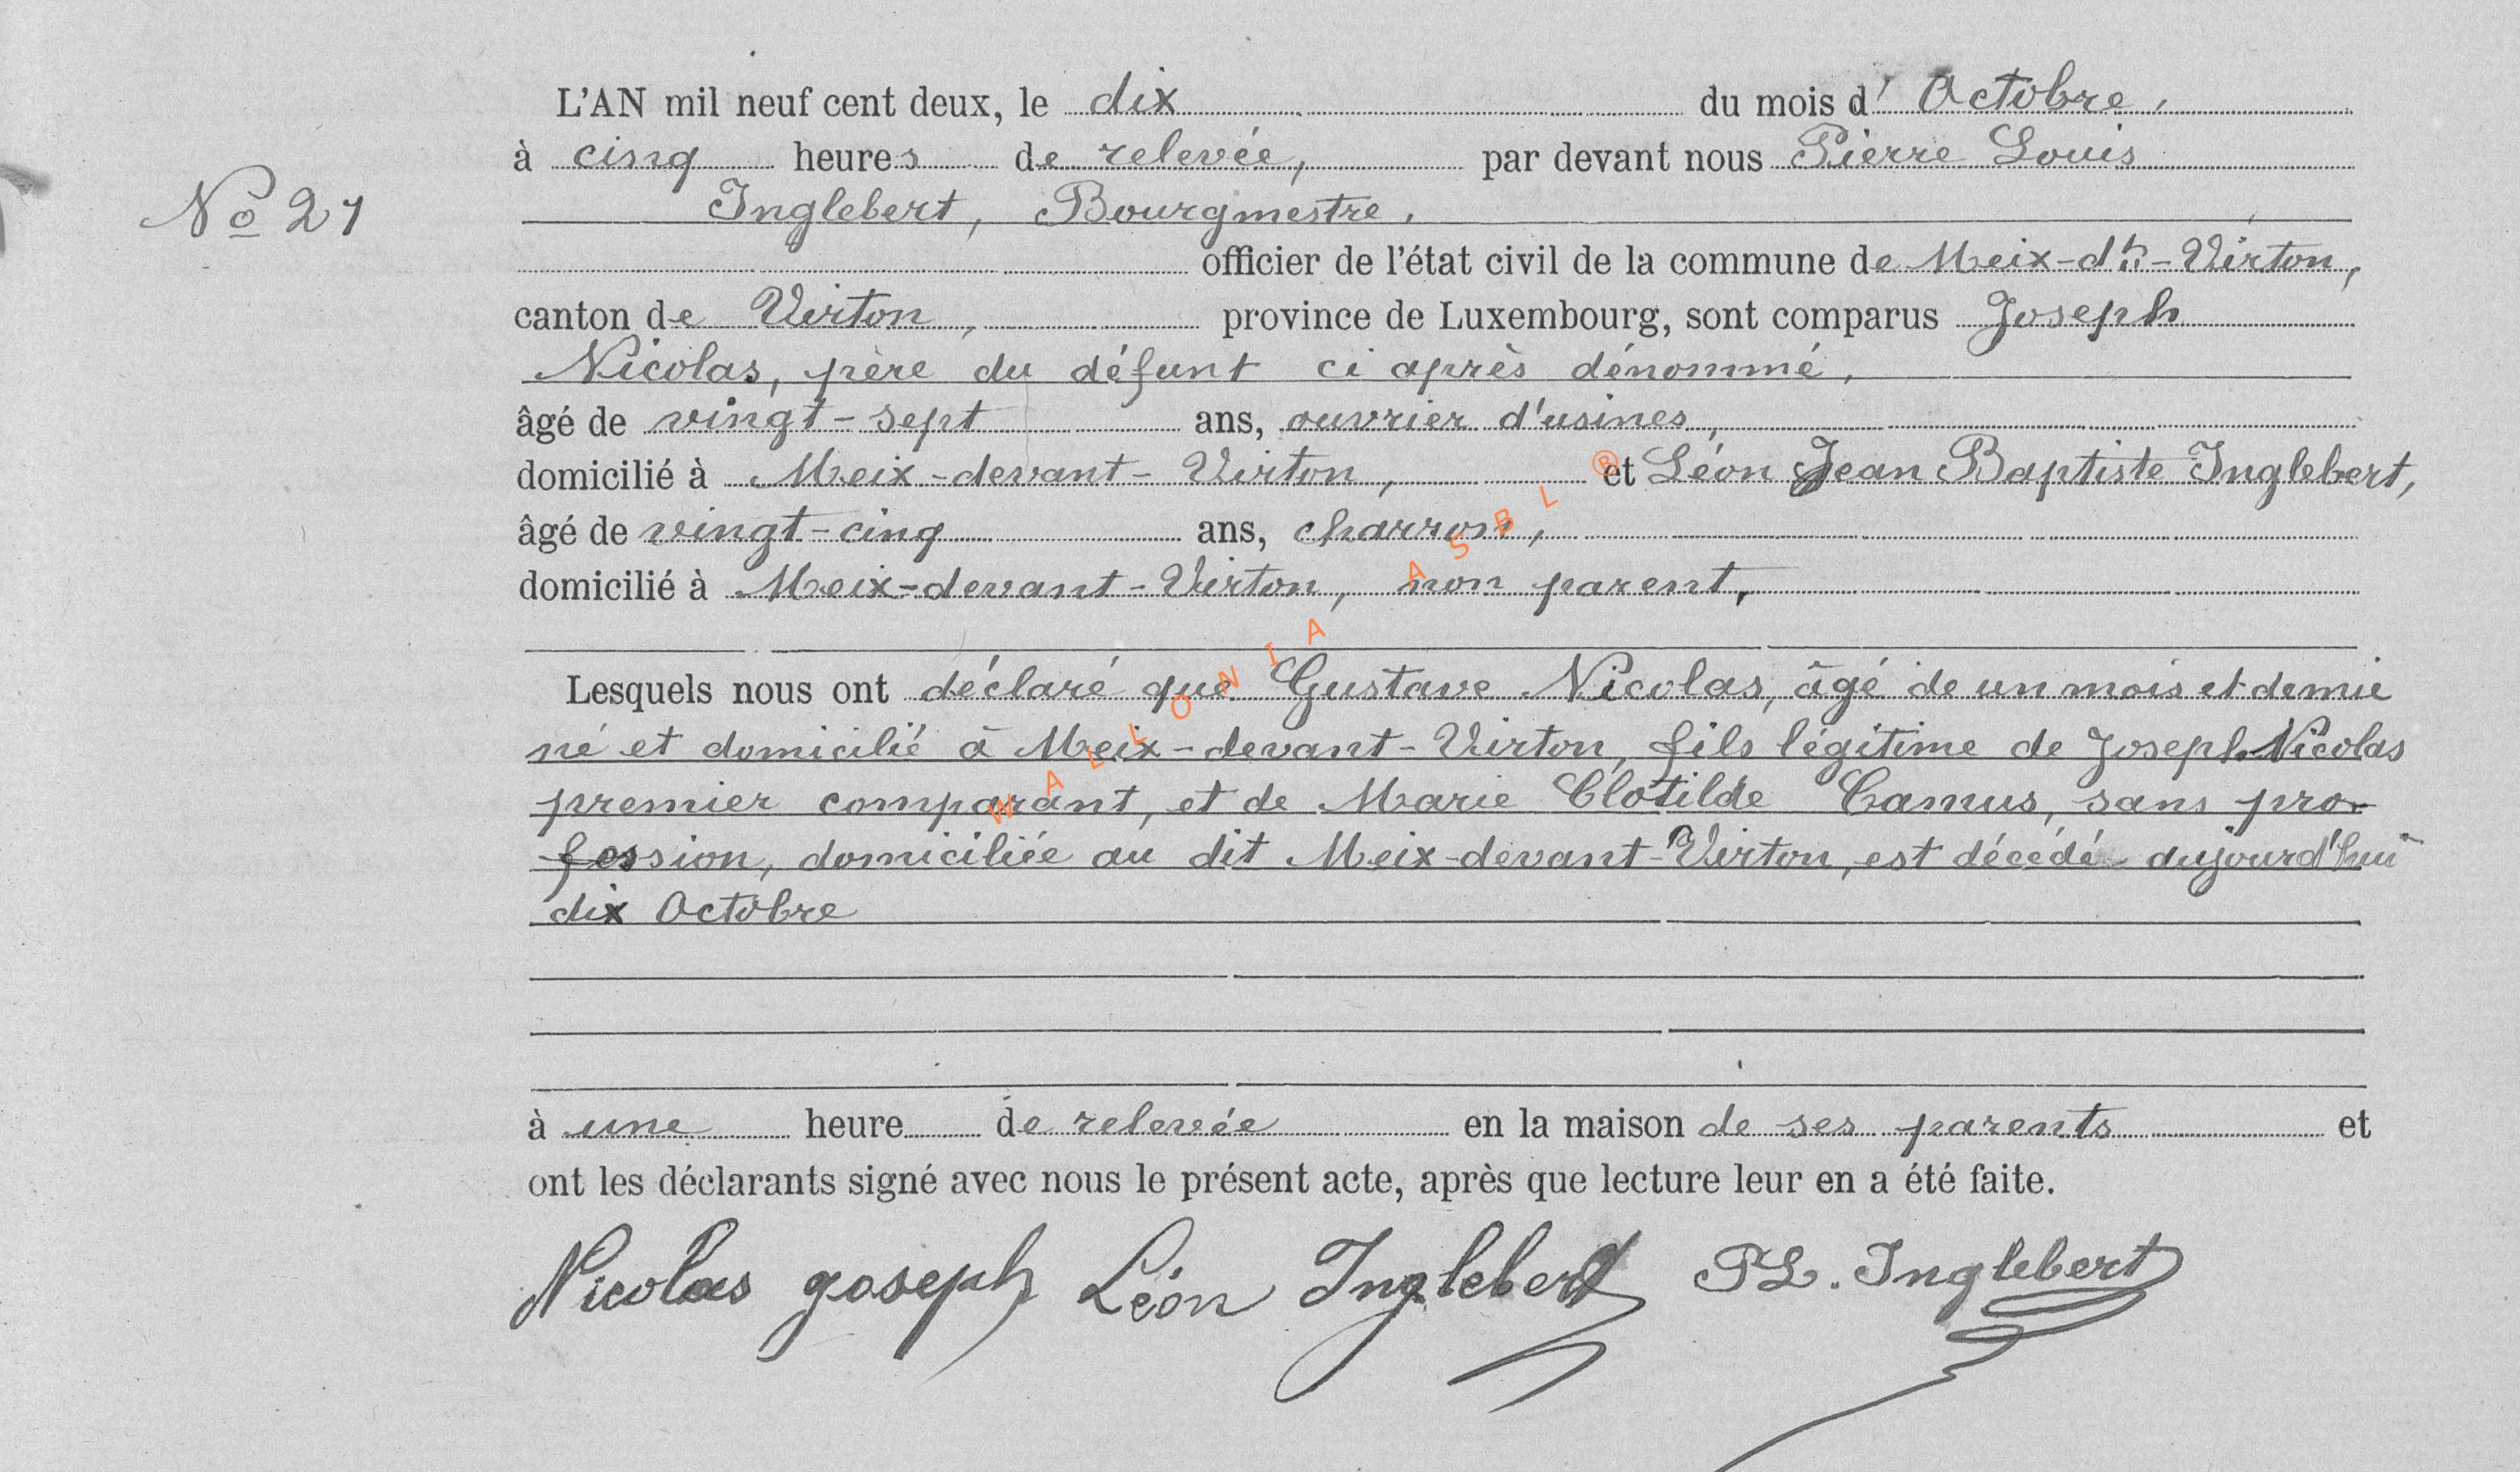 L'AN mil neuf cent deux, le dix du mois d' Octobre,
à cinq heures de relevée, par devant nous Pierre Louis
Nº 21
Inglebert, Bourgmestre,
officier de l'état civil de la commune de Meix-dt-Virton,
canton de Virton, province de Luxembourg, sont comparus Joseph
Nicolas, père du défunt ci après dénommé,
âgé de vingt-sept ans, ouvrier d'usines,
domicilié à Meix-devant-Virton, et Léon Jean Baptiste Inglebert,
âgé de vingt-cinq ans, charron,
domicilié à Meix-devant-Virton, non parent,
Lesquels nous ont déclaré que Gustave Nicolas, âgé de un mois et demie
né et domicilié à Meix-devant-Virton, fils légitime de Joseph Nicolas
premier comparant, et de Marie Clotilde Camus, sans pro-
fession, domiciliée au dit Meix-devant-Virton, est décédé aujourd'hui
dix Octobre
à une heure de relevée en la maison de ses parents et
ont les déclarants signé avec nous le présent acte, après que lecture leur en a été faite.
Nicolas Joseph Léon Inglebert PL. Inglebert
WALLONIA ASBL ®